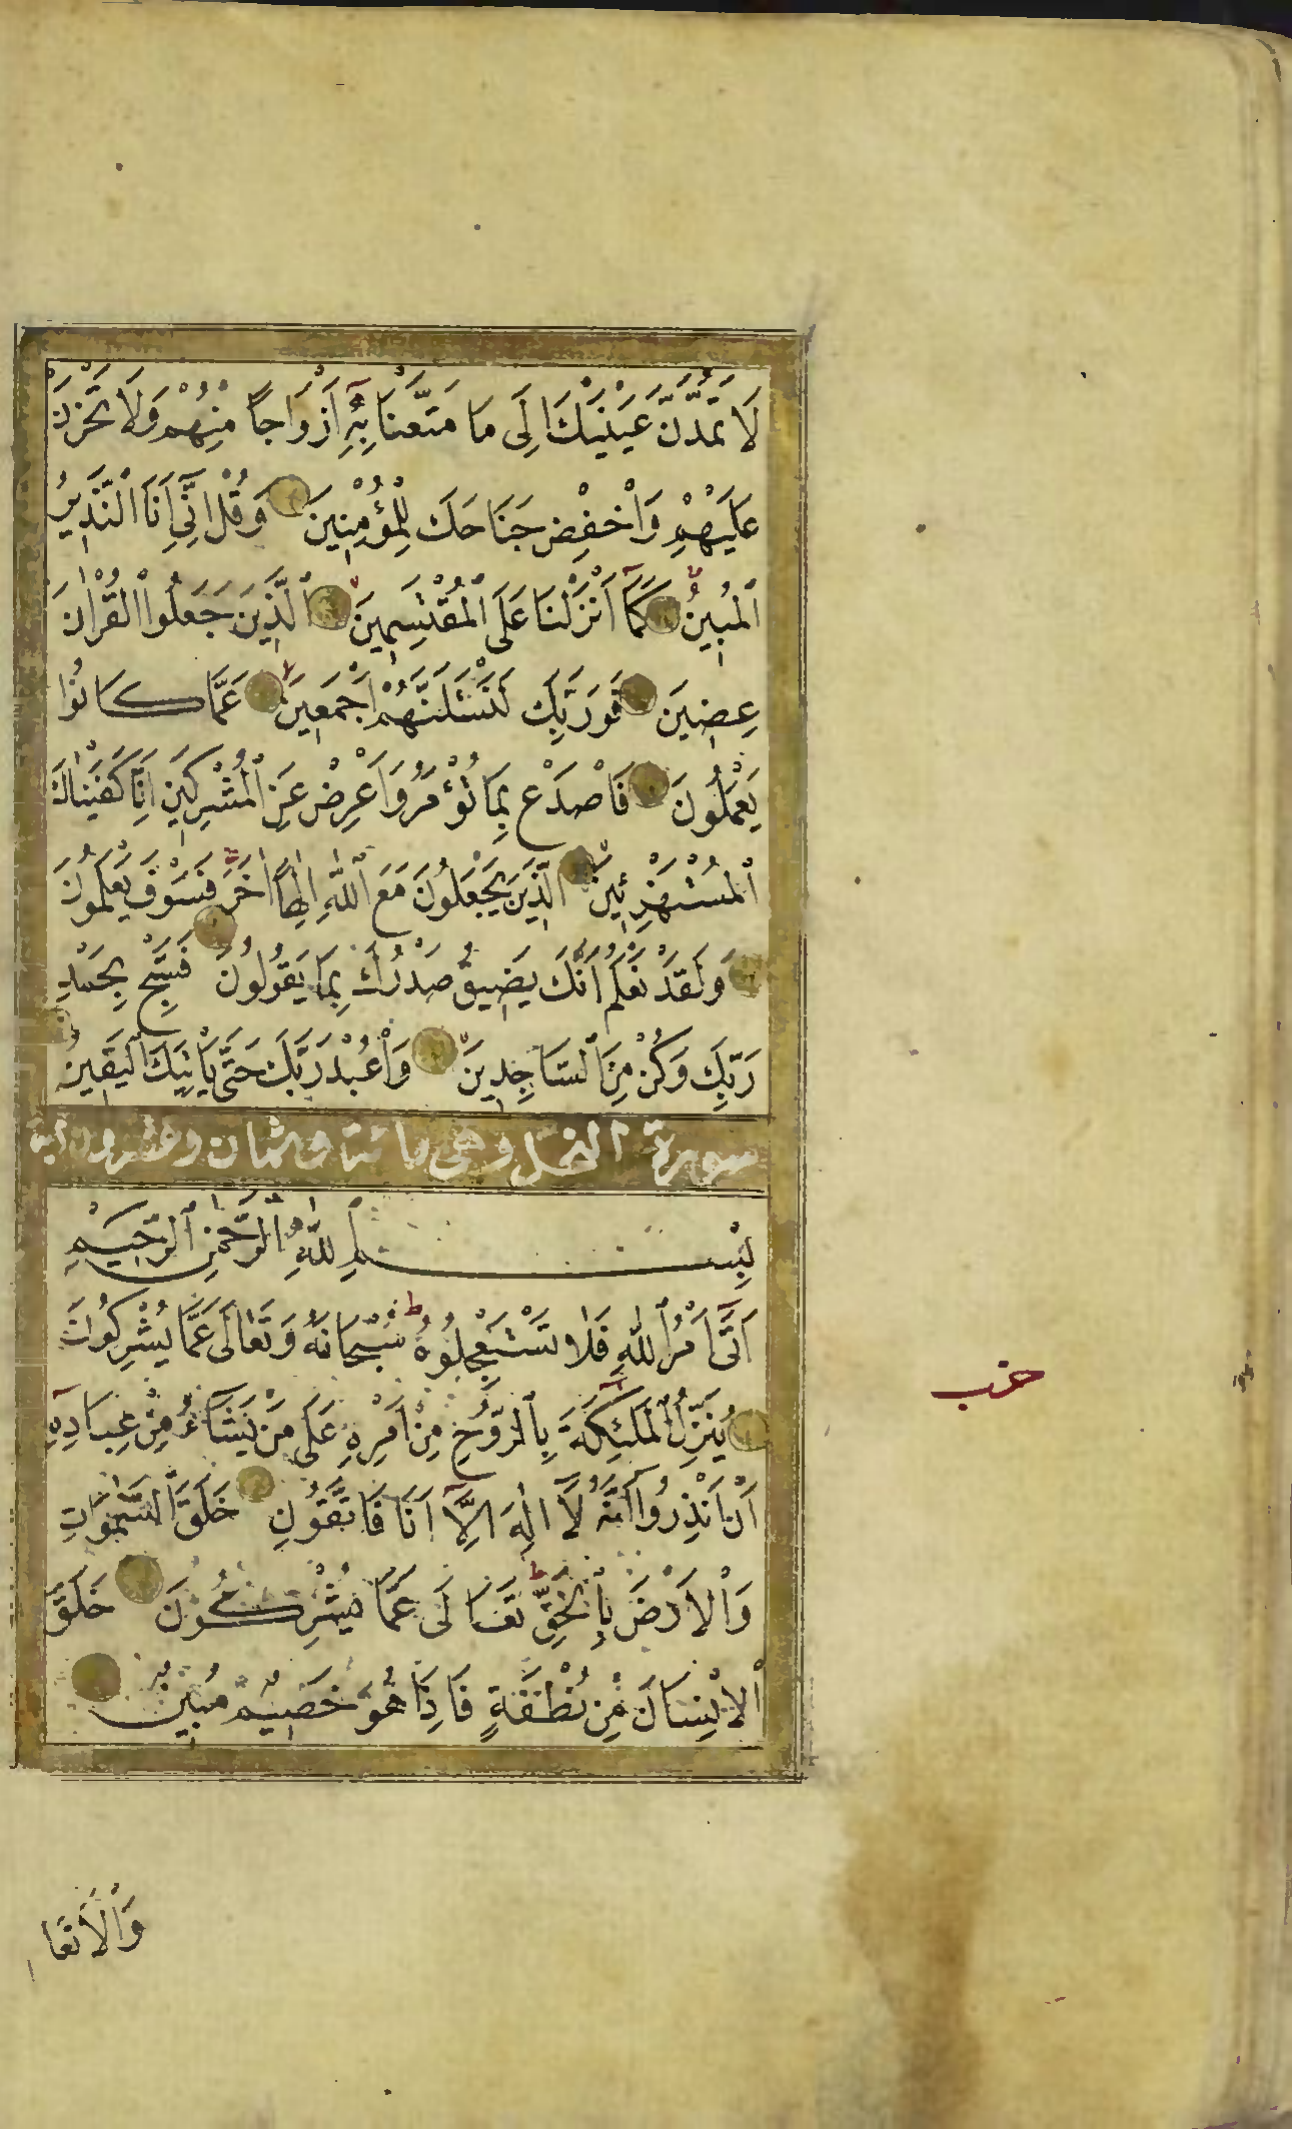 لَا تَمُدَّنَّ عَيْنَيْكَ اِلَى مَا مَتَّعْنَا بِهِٓ اَزْوَاجًا مِنْهُمْ وَلَا تَحْزَنْ
عَلَيْهِمْ وَاخْفِضْ جَنَاحَكَ لِلْمُؤْمِنِينَ وَقُلْ اِنِّٓى اَنَا النَّذِيرُ
الْمُبِينُ كَمَٓا اَنْزَلْنَا عَلَى الْمُقْتَسِمِينَ الَّذِينَ جَعَلُوا الْقُرْاٰنَ
عِضِينَ فَوَرَبِّكَ لَنَسْئَلَنَّهُمْ اَجْمَعِينَ عَمَّا كَانُوا
يَعْمَلُونَ فَاصْدَعْ بِمَا تُؤْمَرُ وَاَعْرِضْ عَنِ الْمُشْرِكِينَ اِنَّا كَفَيْنَاكَ
الْمُسْتَهْزِئِينَ الَّذِينَ يَجْعَلُونَ مَعَ اللّٰهِ اِلٰهًا اٰخَرَ فَسَوْفَ يَعْلَمُونَ
وَلَقَدْ نَعْلَمُ اَنَّكَ يَضِيقُ صَدْرُكَ بِمَا يَقُولُونَ فَسَبِّحْ بِحَمْدِ
رَبِّكَ وَكُنْ مِنَ السَّاجِدِينَ وَاعْبُدْ رَبَّكَ حَتَّى يَأْتِيَكَ الْيَقِينُ
سورة النحل وهى مائة وثمان وعشرون آية
بِسْمِ اللّٰهِ الرَّحْمٰنِ الرَّحِيمِ
اَتٰٓى اَمْرُ اللّٰهِ فَلَا تَسْتَعْجِلُوهُ سُبْحَانَهُ وَتَعَالَى عَمَّا يُشْرِكُونَ
يُنَزِّلُ الْمَلٰٓئِكَةَ بِالرُّوحِ مِنْ اَمْرِهِ عَلَى مَنْ يَشَٓاءُ مِنْ عِبَادِهِٓ
اَنْ اَنْذِرُٓوا اَنَّهُ لَٓا اِلٰهَ اِلَّٓا اَنَا فَاتَّقُونِ خَلَقَ السَّمٰوَاتِ
وَالْاَرْضَ بِالْحَقِّ تَعَالَى عَمَّا يُشْرِكُونَ خَلَقَ
الْاِنْسَانَ مِنْ نُطْفَةٍ فَاِذَا هُوَ خَصِيمٌ مُبِينٌ
حزب
وَالْاَنْعَا